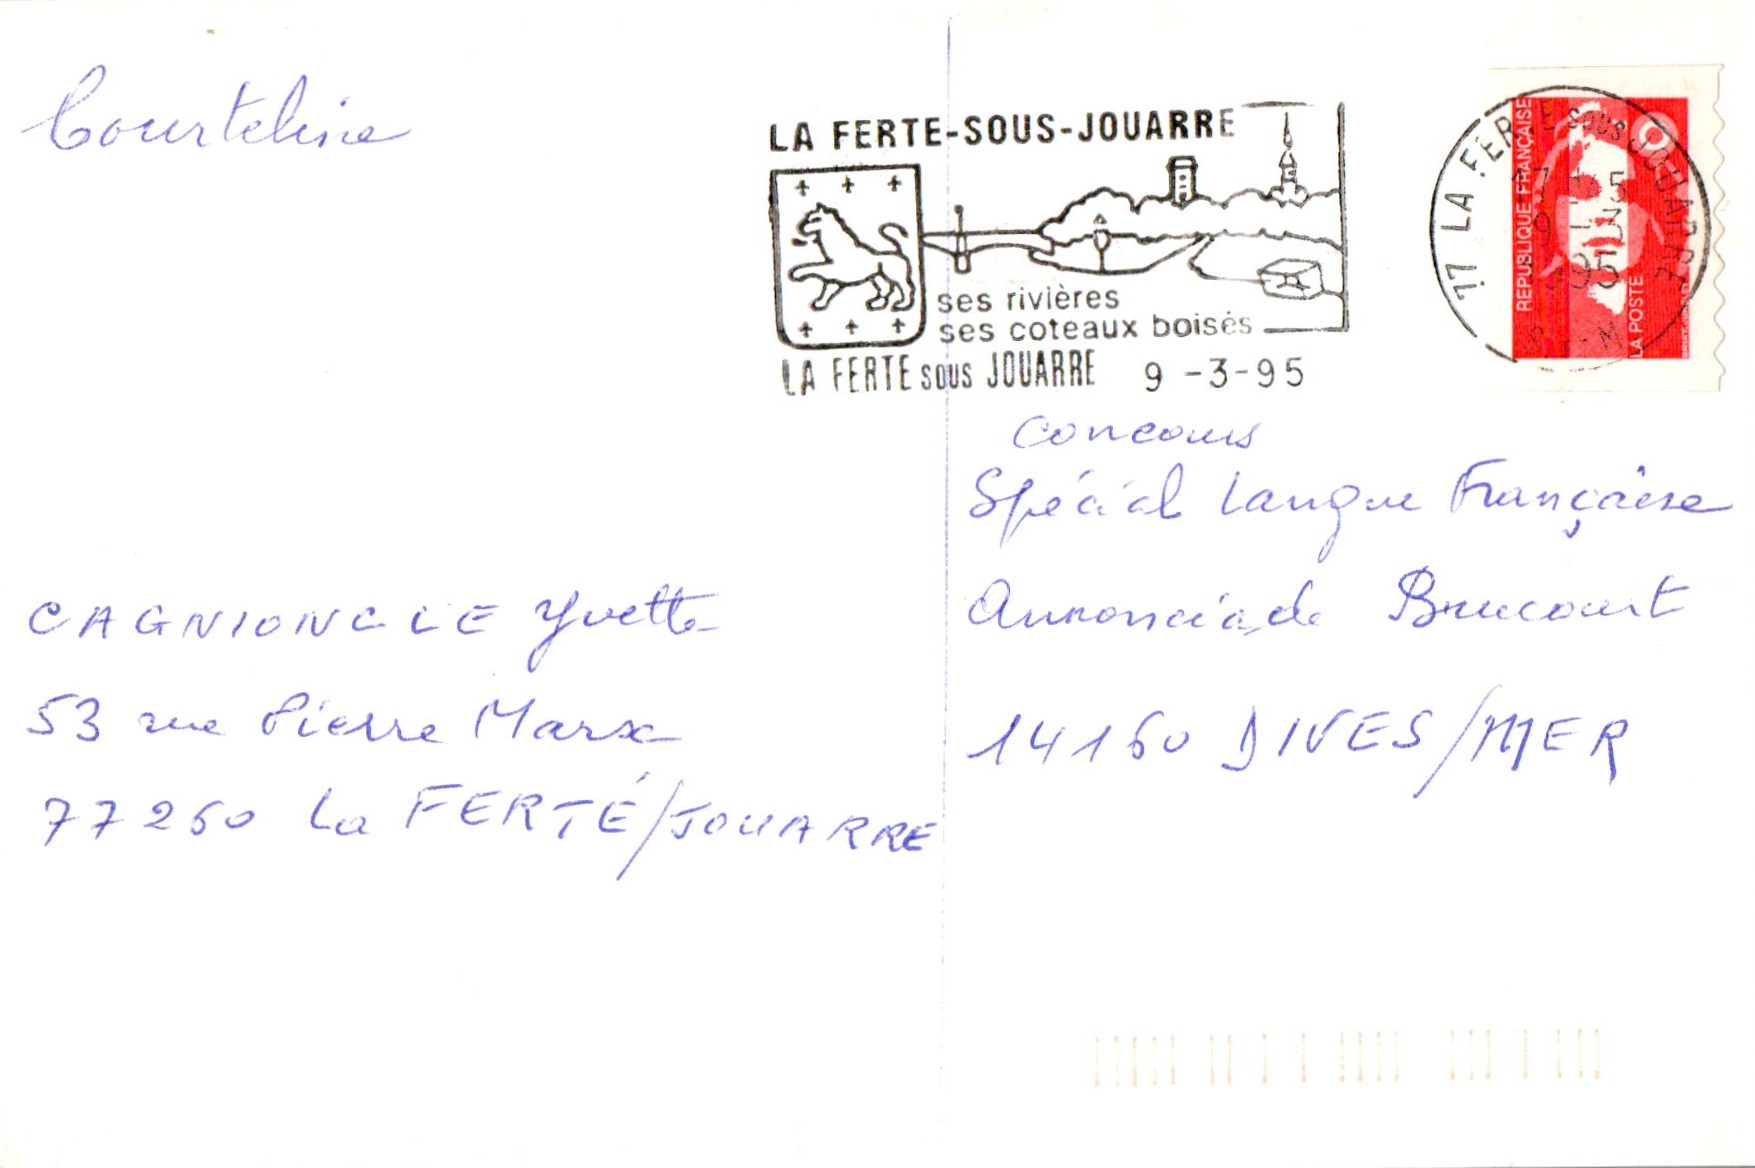 Courteline
CAGNIONCLE Yvette
53 rue Pierre Marx
77260 La FERTÉ/JOUARRE
LA FERTE-SOUS-JOUARRE
ses rivières
ses coteaux boisés
LA FERTE sous JOUARRE 9 -3-95
77 LA FERTE SOUS JOUARRE
REPUBLIQUE FRANÇAISE
LA POSTE
Concours
Spécial Langue Française
Annonciade Brucourt
14160 DIVES/MER